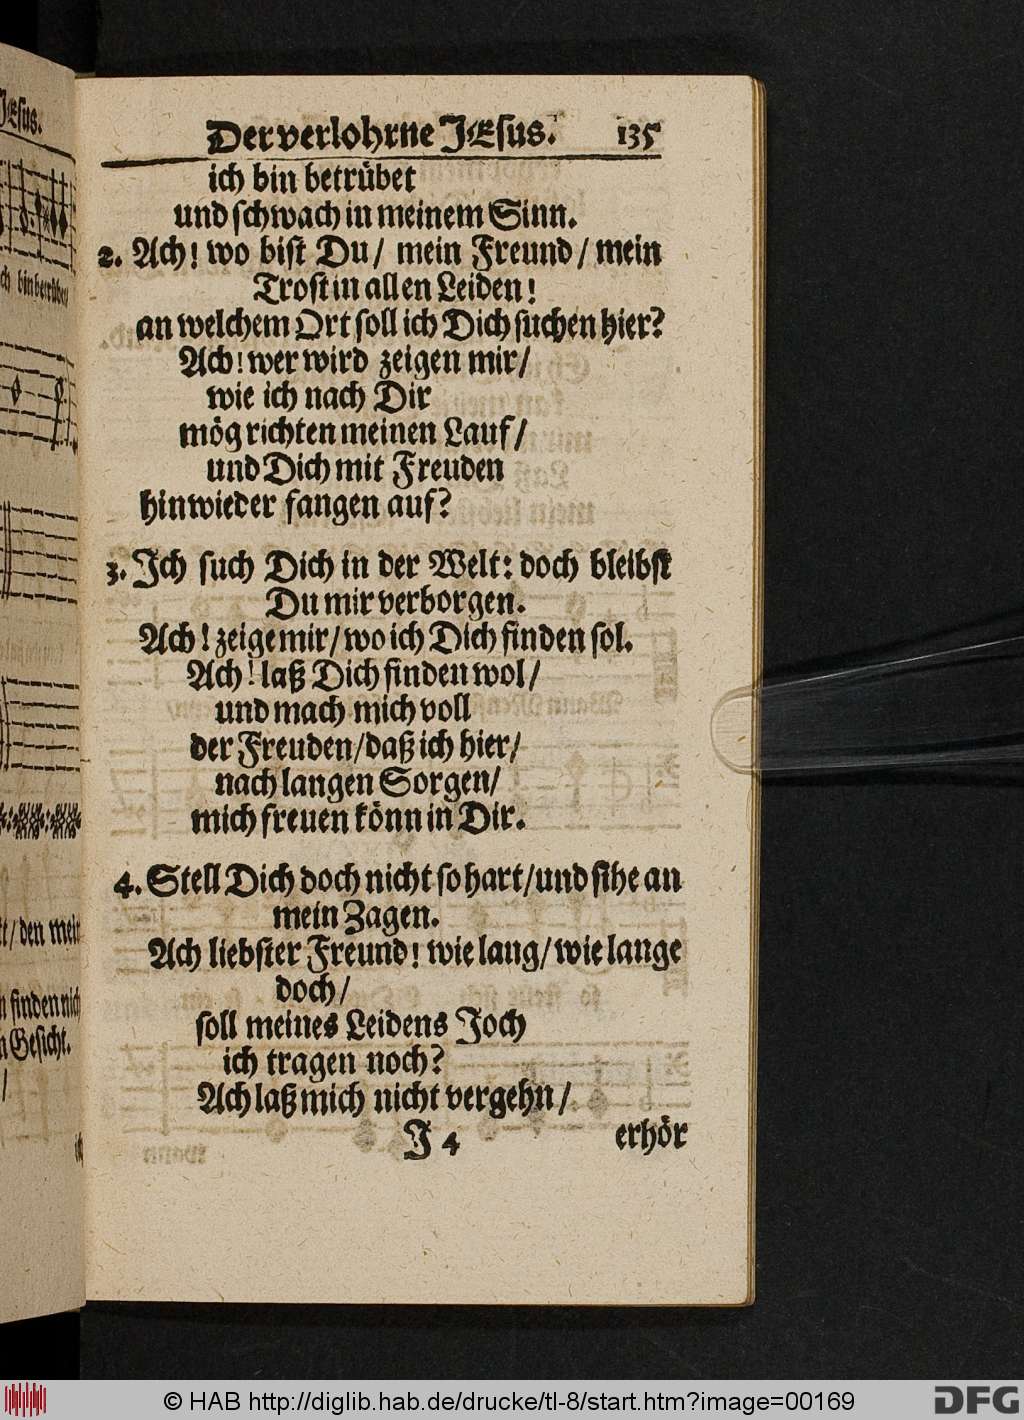 JEsus.
Der verlohrne JEsus. 135
ich bin betrübet
und schwach in meinem Sinn.
2. Ach! wo bist Du/ mein Freund/ mein
Trost in allen Leiden!
an welchem Ort soll ich Dich suchen hier?
Ach! wer wird zeigen mir/
wie ich nach Dir
mög richten meinen Lauf/
und Dich mit Freuden
hinwieder fangen auf?
3. Ich such Dich in der Welt: doch bleibst
Du mir verborgen.
Ach! zeige mir/ wo ich Dich finden sol.
Ach! laß Dich finden wol/
und mach mich voll
der Freuden/ daß ich hier/
nach langen Sorgen/
mich freuen könn in Dir.
4. Stell Dich doch nicht so hart/ und sihe an
mein Zagen.
Ach liebster Freund! wie lang/ wie lange
doch/
soll meines Leidens Joch
ich tragen noch?
Ach laß mich nicht vergehn/
J 4 erhör
bin betrübet
den mein
finden nich
Gesicht.
© HAB http://diglib.hab.de/drucke/tl-8/start.htm?image=00169
DFG